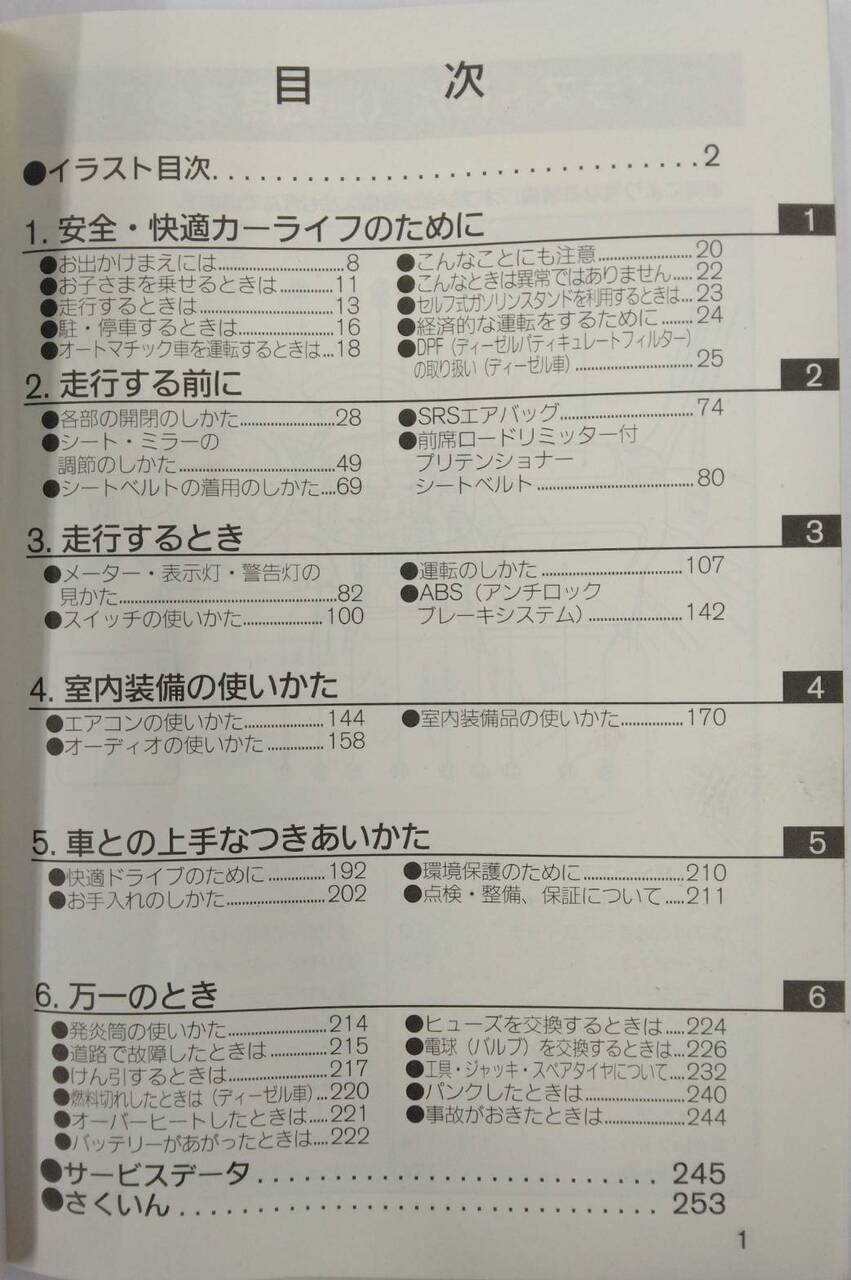 目次
●イラスト目次..............................2
1. 安全・快適カーライフのために
1
●お出かけまえには..............................8
●お子さまを乗せるときは..............11
●走行するときは..............................13
●駐・停車するときは......................16
●オートマチック車を運転するときは...18
●こんなことにも注意......................20
●こんなときは異常ではありません.....22
●セルフ式ガソリンスタンドを利用するときは...23
●経済的な運転をするために........24
●DPF（ディーゼルパティキュレートフィルター）
の取り扱い（ディーゼル車）..............................25
2. 走行する前に
2
●各部の開閉のしかた......................28
●シート・ミラーの
調節のしかた....................................49
●シートベルトの着用のしかた....69
●SRSエアバッグ..............................74
●前席ロードリミッター付
プリテンショナー
シートベルト....................................80
3. 走行するとき
3
●メーター・表示灯・警告灯の
見かた..................................................82
●スイッチの使いかた....................100
●運転のしかた................................107
●ABS（アンチロック
ブレーキシステム）......................142
4. 室内装備の使いかた
4
●エアコンの使いかた....................144
●オーディオの使いかた..............158
●室内装備品の使いかた..............170
5. 車との上手なつきあいかた
5
●快適ドライブのために..............192
●お手入れのしかた........................202
●環境保護のために........................210
●点検・整備、保証について.....211
6. 万一のとき
6
●発炎筒の使いかた........................214
●道路で故障したときは..............215
●けん引するときは........................217
●燃料切れしたときは（ディーゼル車）...220
●オーバーヒートしたときは.....221
●バッテリーがあがったときは....222
●ヒューズを交換するときは.....224
●電球（バルブ）を交換するときは...226
●工具・ジャッキ・スペアタイヤについて....232
●パンクしたときは........................240
●事故がおきたときは....................244
●サービスデータ............................245
●さくいん..............................253
1